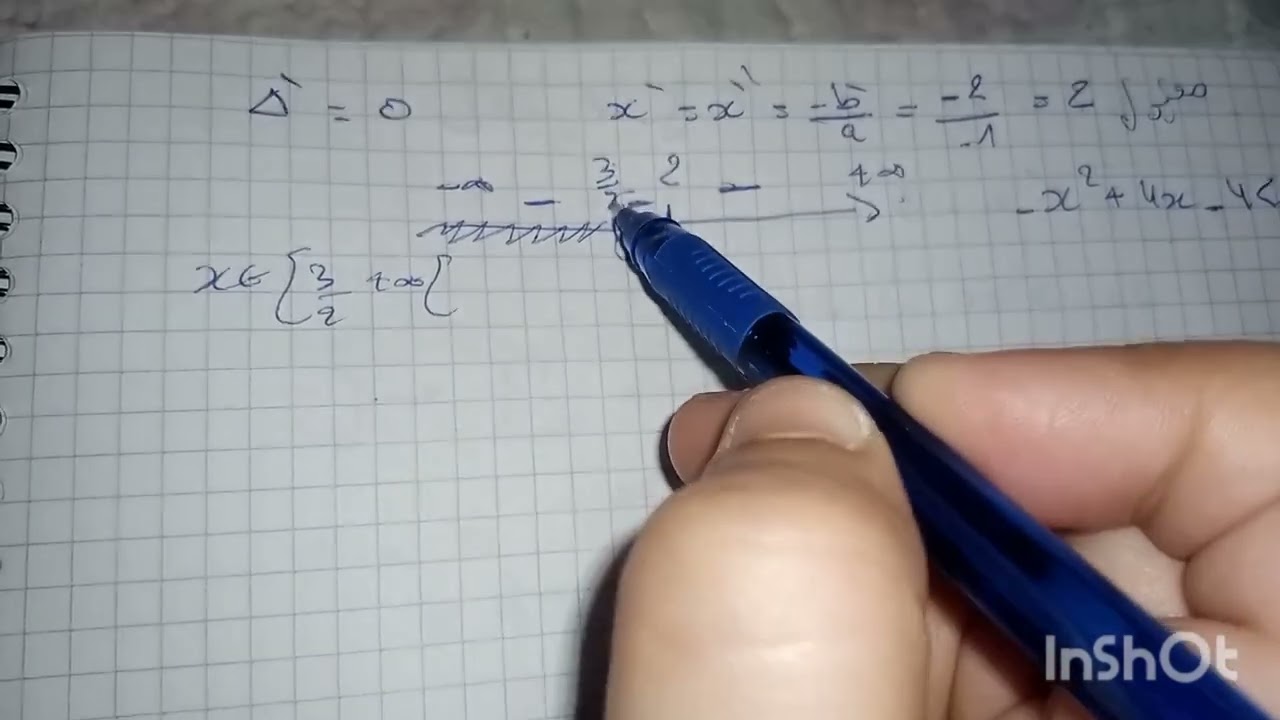 Δ' = 0 x' = x'' = -b'/a = -2/-1 = 2
-∞ - 3/2 - 2 - +∞
-x² + 4x - 4 <
x ∈ [3/2 +∞[
InShOt